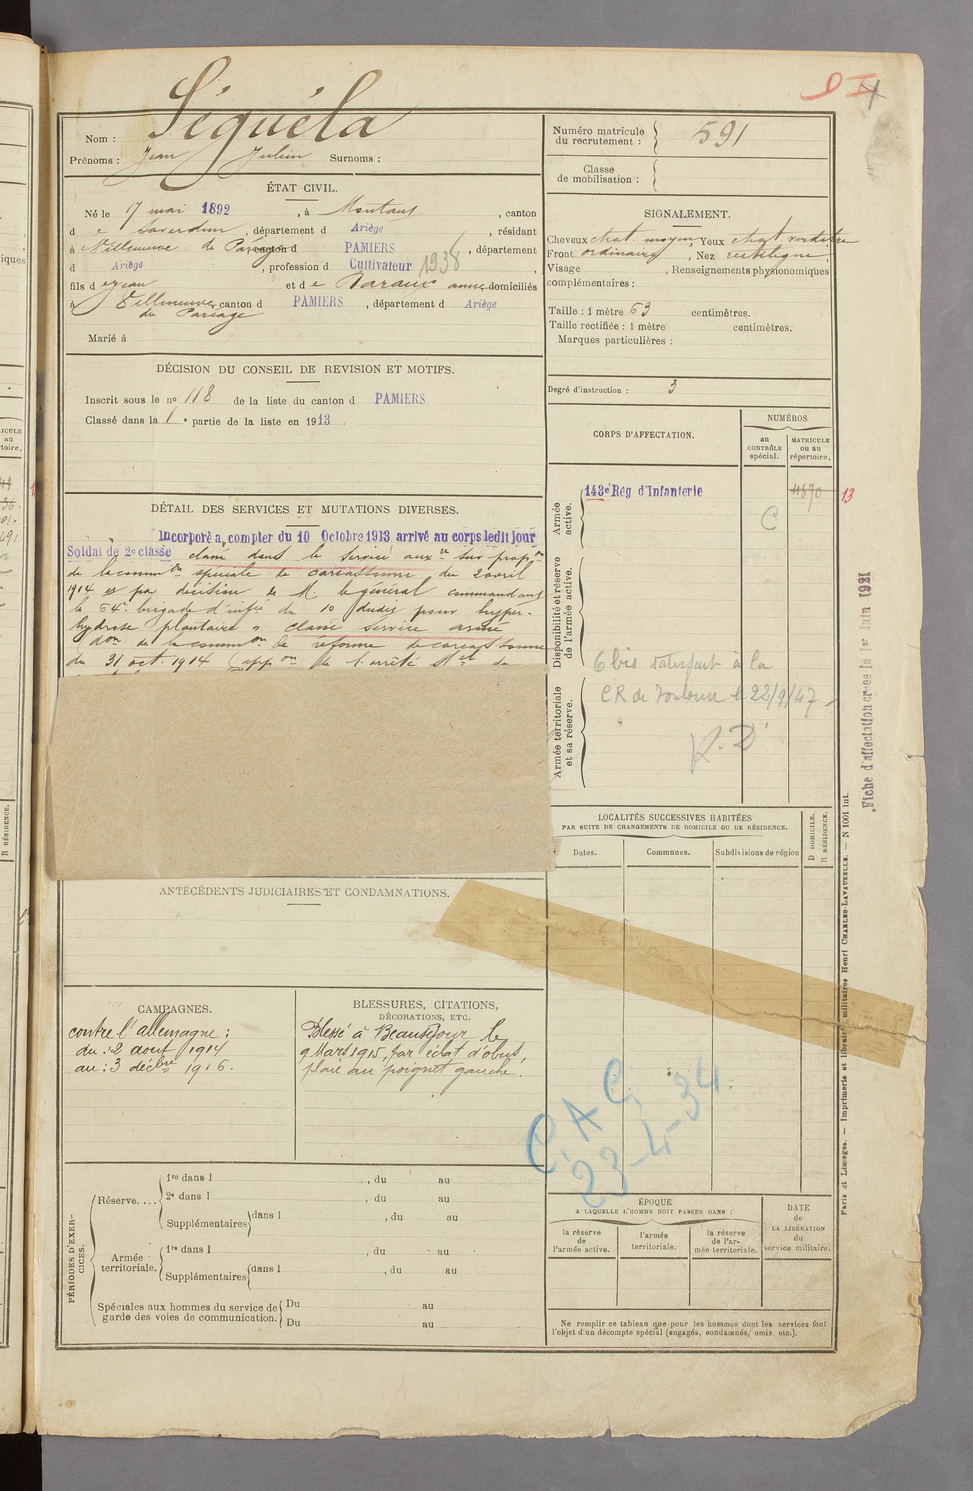 Nom : Séquéla
Prénoms : Jean Julien Surnoms :
ÉTAT CIVIL.
Né le 17 mai 1892, à Montaut, canton
d e Saverdun, département d Ariège, résidant
à Villeneuve du Paréage canton d PAMIERS, département
d Ariège, profession de Cultivateur 1938,
fils d e Jean et d e Baraux anne domiciliés
à Villeneuve canton d PAMIERS, département d Ariège
du Pareage
Marié à
DÉCISION DU CONSEIL DE REVISION ET MOTIFS.
Inscrit sous le no 118 de la liste du canton d PAMIERS
Classé dans la 1e partie de la liste en 1913
DÉTAIL DES SERVICES ET MUTATIONS DIVERSES.
Incorporé à compter du 10 Octobre 1913 arrivé au corps ledit jour
Soldat de 2e classe classé dans le service auxre sur propon
de la common spéciale de carcassonne du 2 avril
1914 et par décision de M. le général commandant
la 64e brigade d'infie du 10 dudit pour hyper-
hydrose plantaire. classé service armé
don de la common de réforme de carcassonne
du 31 oct. 1914 (appon de l'arrêté Mel de
ANTÉCÉDENTS JUDICIAIRES ET CONDAMNATIONS.
CAMPAGNES.
contre l'allemagne :
du : 2 aout 1914
au : 3 décbre 1916.
BLESSURES, CITATIONS,
DÉCORATIONS, ETC.
Blessé à Beauséjour le
9 Mars 1915, par éclat d'obus,
plaie au poignet gauche.
PÉRIODES D'EXER-
CICES.
Réserve....
1re dans l , du au
2e dans l , du au
Supplémentaires dans l , du au
Armée
territoriale.
1re dans l , du au
Supplémentaires dans l , du au
Spéciales aux hommes du service de
garde des voies de communication.
Du au
Du au
Numéro matricule
du recrutement : 591
Classe
de mobilisation :
SIGNALEMENT.
Cheveux chat. moyen, Yeux chat. verdâtre
Front ordinaire, Nez rectiligne
Visage , Renseignements physionomiques
complémentaires :
Taille : 1 mètre 63 centimètres.
Taille rectifiée : 1 mètre centimètres.
Marques particulières :
Degré d'instruction : 3
CORPS D'AFFECTATION.
NUMÉROS
au
CONTRÔLE
spécial.
MATRICULE
ou au
répertoire.
Armée
active.
143e Rég d'Infanterie
4870
13
C
Disponibilité et réserve
de l'armée active.
6 bis satisfait à la
CR de Toulouse le 22/9/47
Armée territoriale
et sa réserve.
LOCALITÉS SUCCESSIVES HABITÉES
PAR SUITE DE CHANGEMENTS DE DOMICILE OU DE RÉSIDENCE.
Dates.
Communes.
Subdivisions de région
D DOMICILE.
R RÉSIDENCE.
C.A.C.
23-4-34
ÉPOQUE
A LAQUELLE L'HOMME DOIT PASSER DANS :
la réserve
de
l'armée active.
l'armée
territoriale.
la réserve
de l'ar-
mée territoriale.
DATE
de
LA LIBÉRATION
du
service militaire.
Ne remplir ce tableau que pour les hommes dont les services font
l'objet d'un décompte spécial (engagés, condamnés, omis, etc.).
Fiche d'affectation créée le 1er Juin 1921
Paris et Limoges. — Imprimerie et librairie militaires Henri CHARLES-LAVAUZELLE. — N 1001 int.